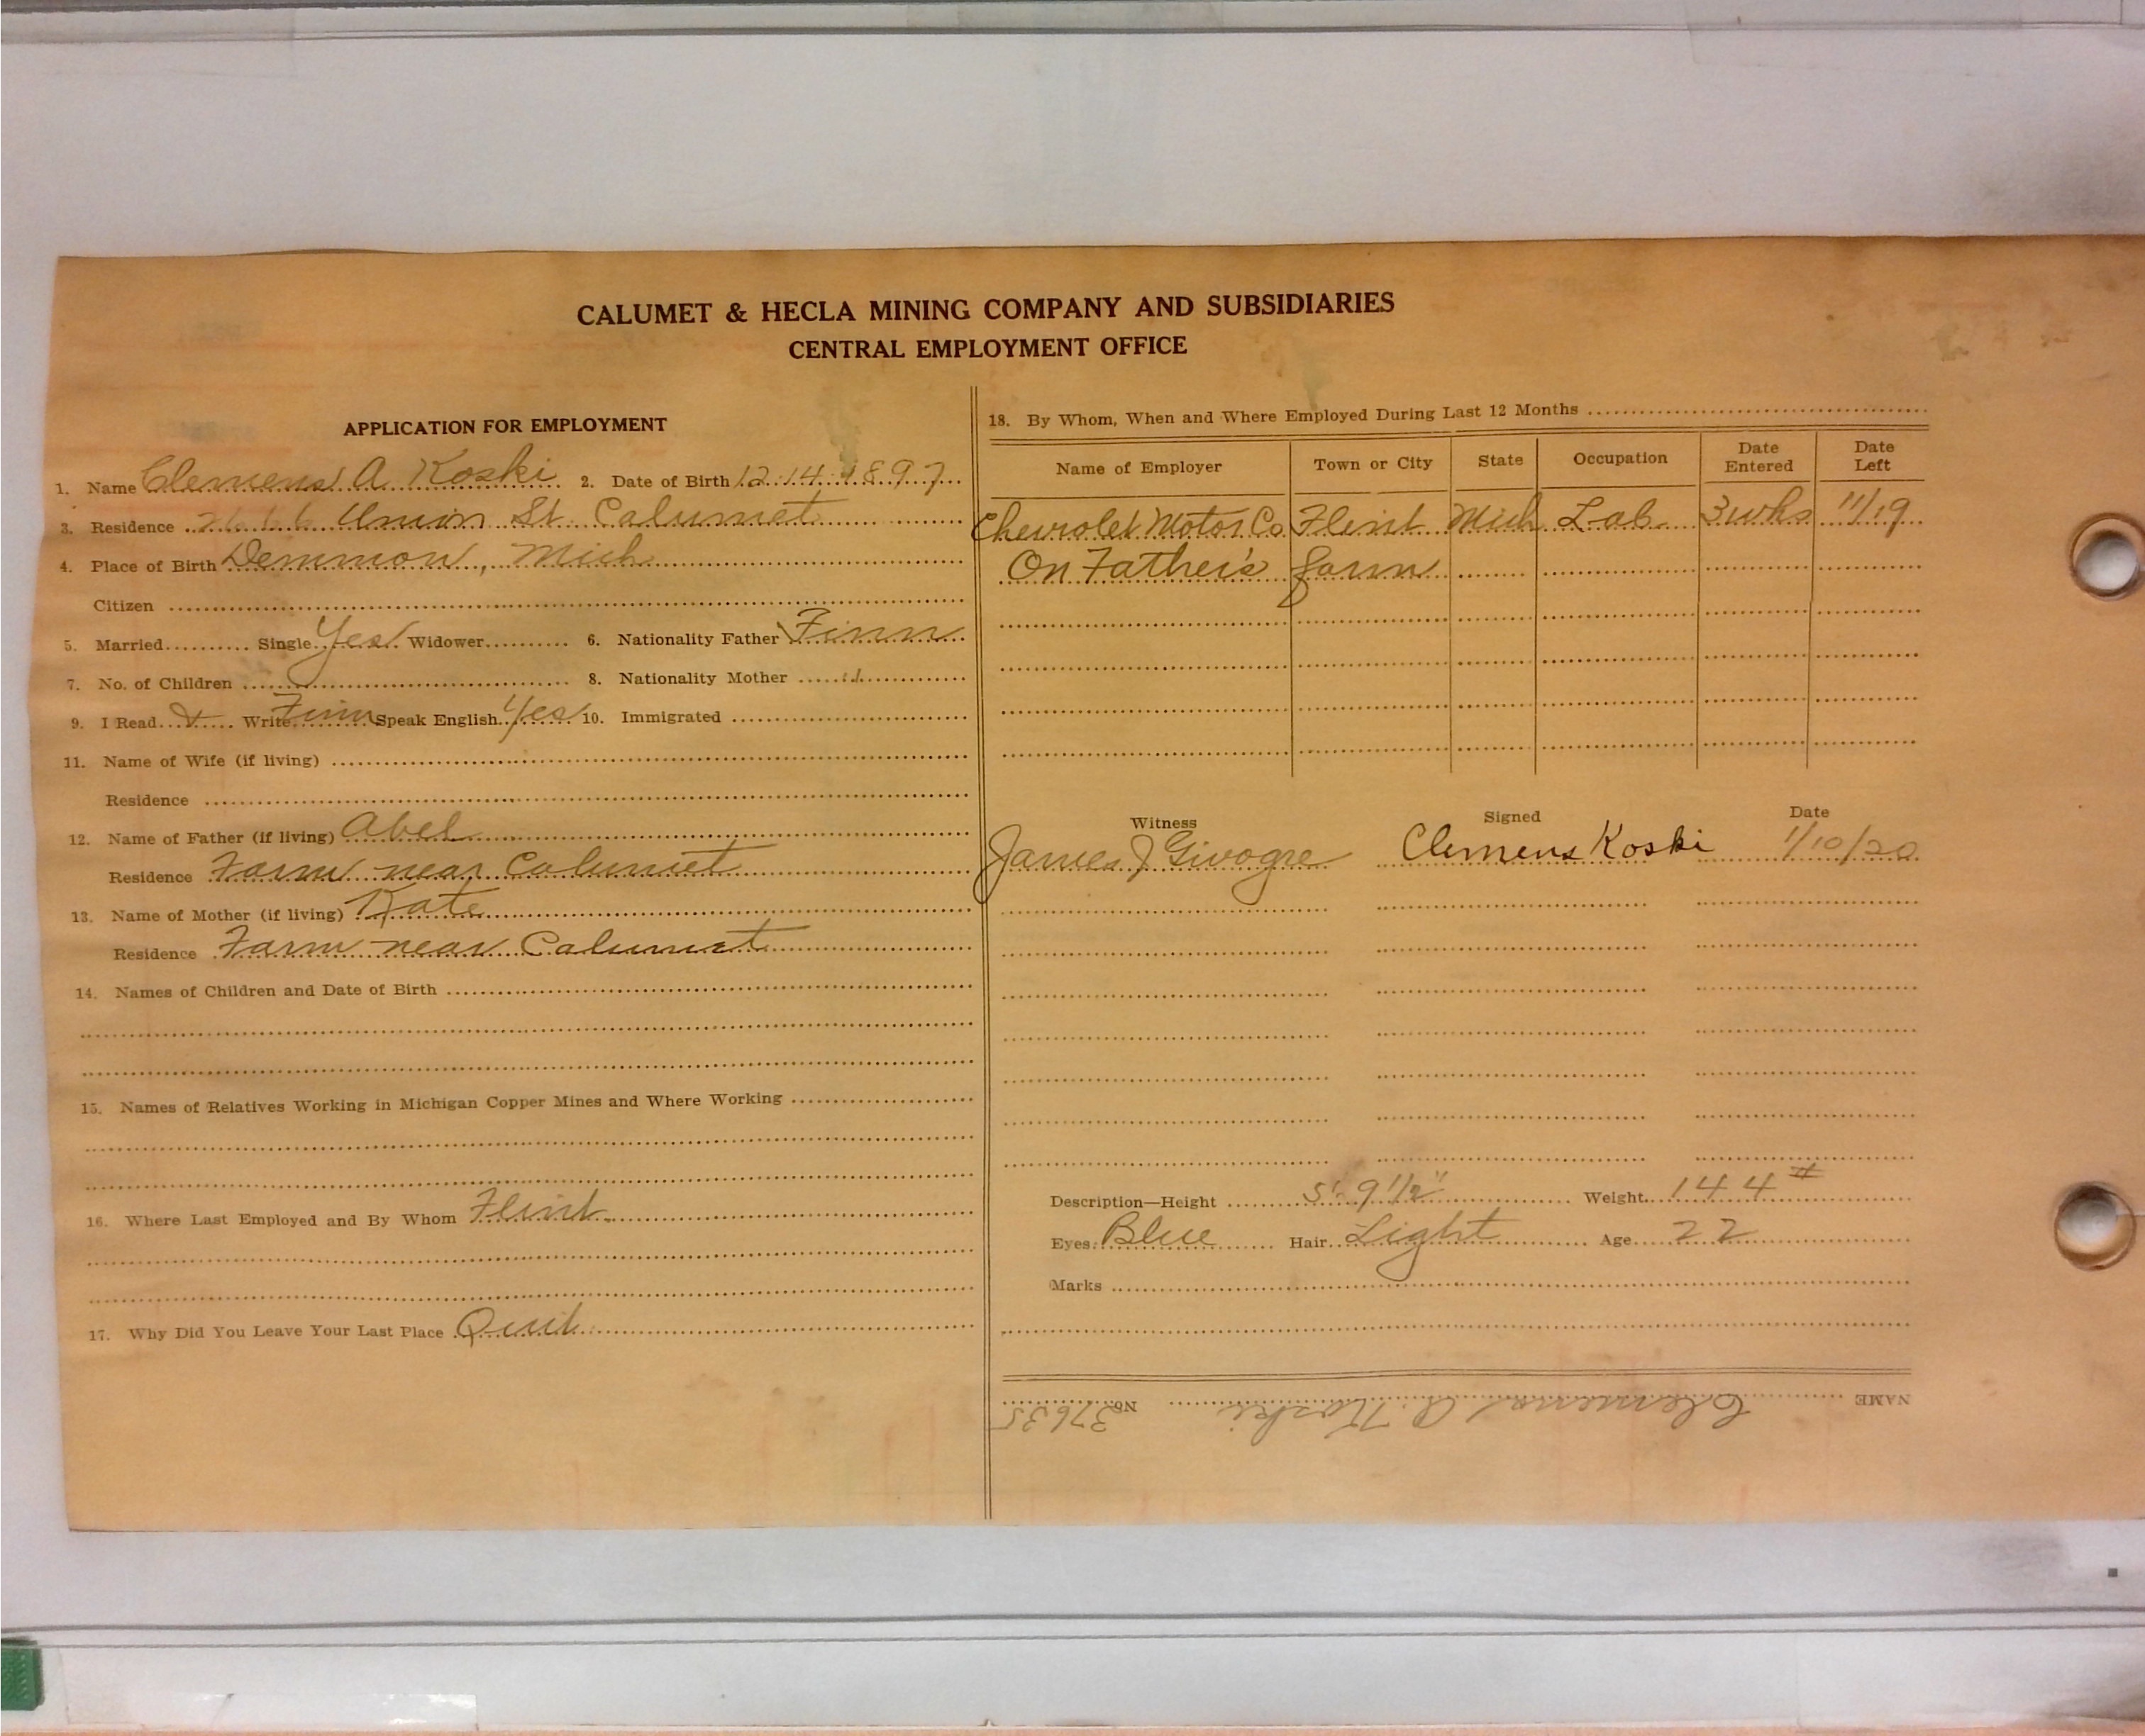 CALUMET & HECLA MINING COMPANY AND SUBSIDIARIES
CENTRAL EMPLOYMENT OFFICE
APPLICATION FOR EMPLOYMENT
1. Name Clemens A Koski 2. Date of Birth 12 14 1897
3. Residence Union St Calumet
4. Place of Birth Demmon, Mich
Citizen
5. Married Single Yes Widower 6. Nationality Father Finn
7. No. of Children 8. Nationality Mother "
9. I Read & Write Finn Speak English Yes 10. Immigrated
11. Name of Wife (if living)
Residence
12. Name of Father (if living) Abel
Residence Farm near Calumet
13. Name of Mother (if living) Kate
Residence Farm near Calumet
14. Names of Children and Date of Birth
15. Names of Relatives Working in Michigan Copper Mines and Where Working
16. Where Last Employed and By Whom Flint
17. Why Did You Leave Your Last Place Quit
18. By Whom, When and Where Employed During Last 12 Months
Name of Employer Town or City State Occupation Date Entered Date Left
Chevrolet Motor Co Flint Mich Lab 3 wks 11/19
On Father's farm
Witness Signed Date
James J Givogre Clemens Koski 1/10/20
Description—Height 5' 9 1/2" Weight 144 #
Eyes Blue Hair Light Age 22
Marks
NAME Clemens A. Koski No. 37635